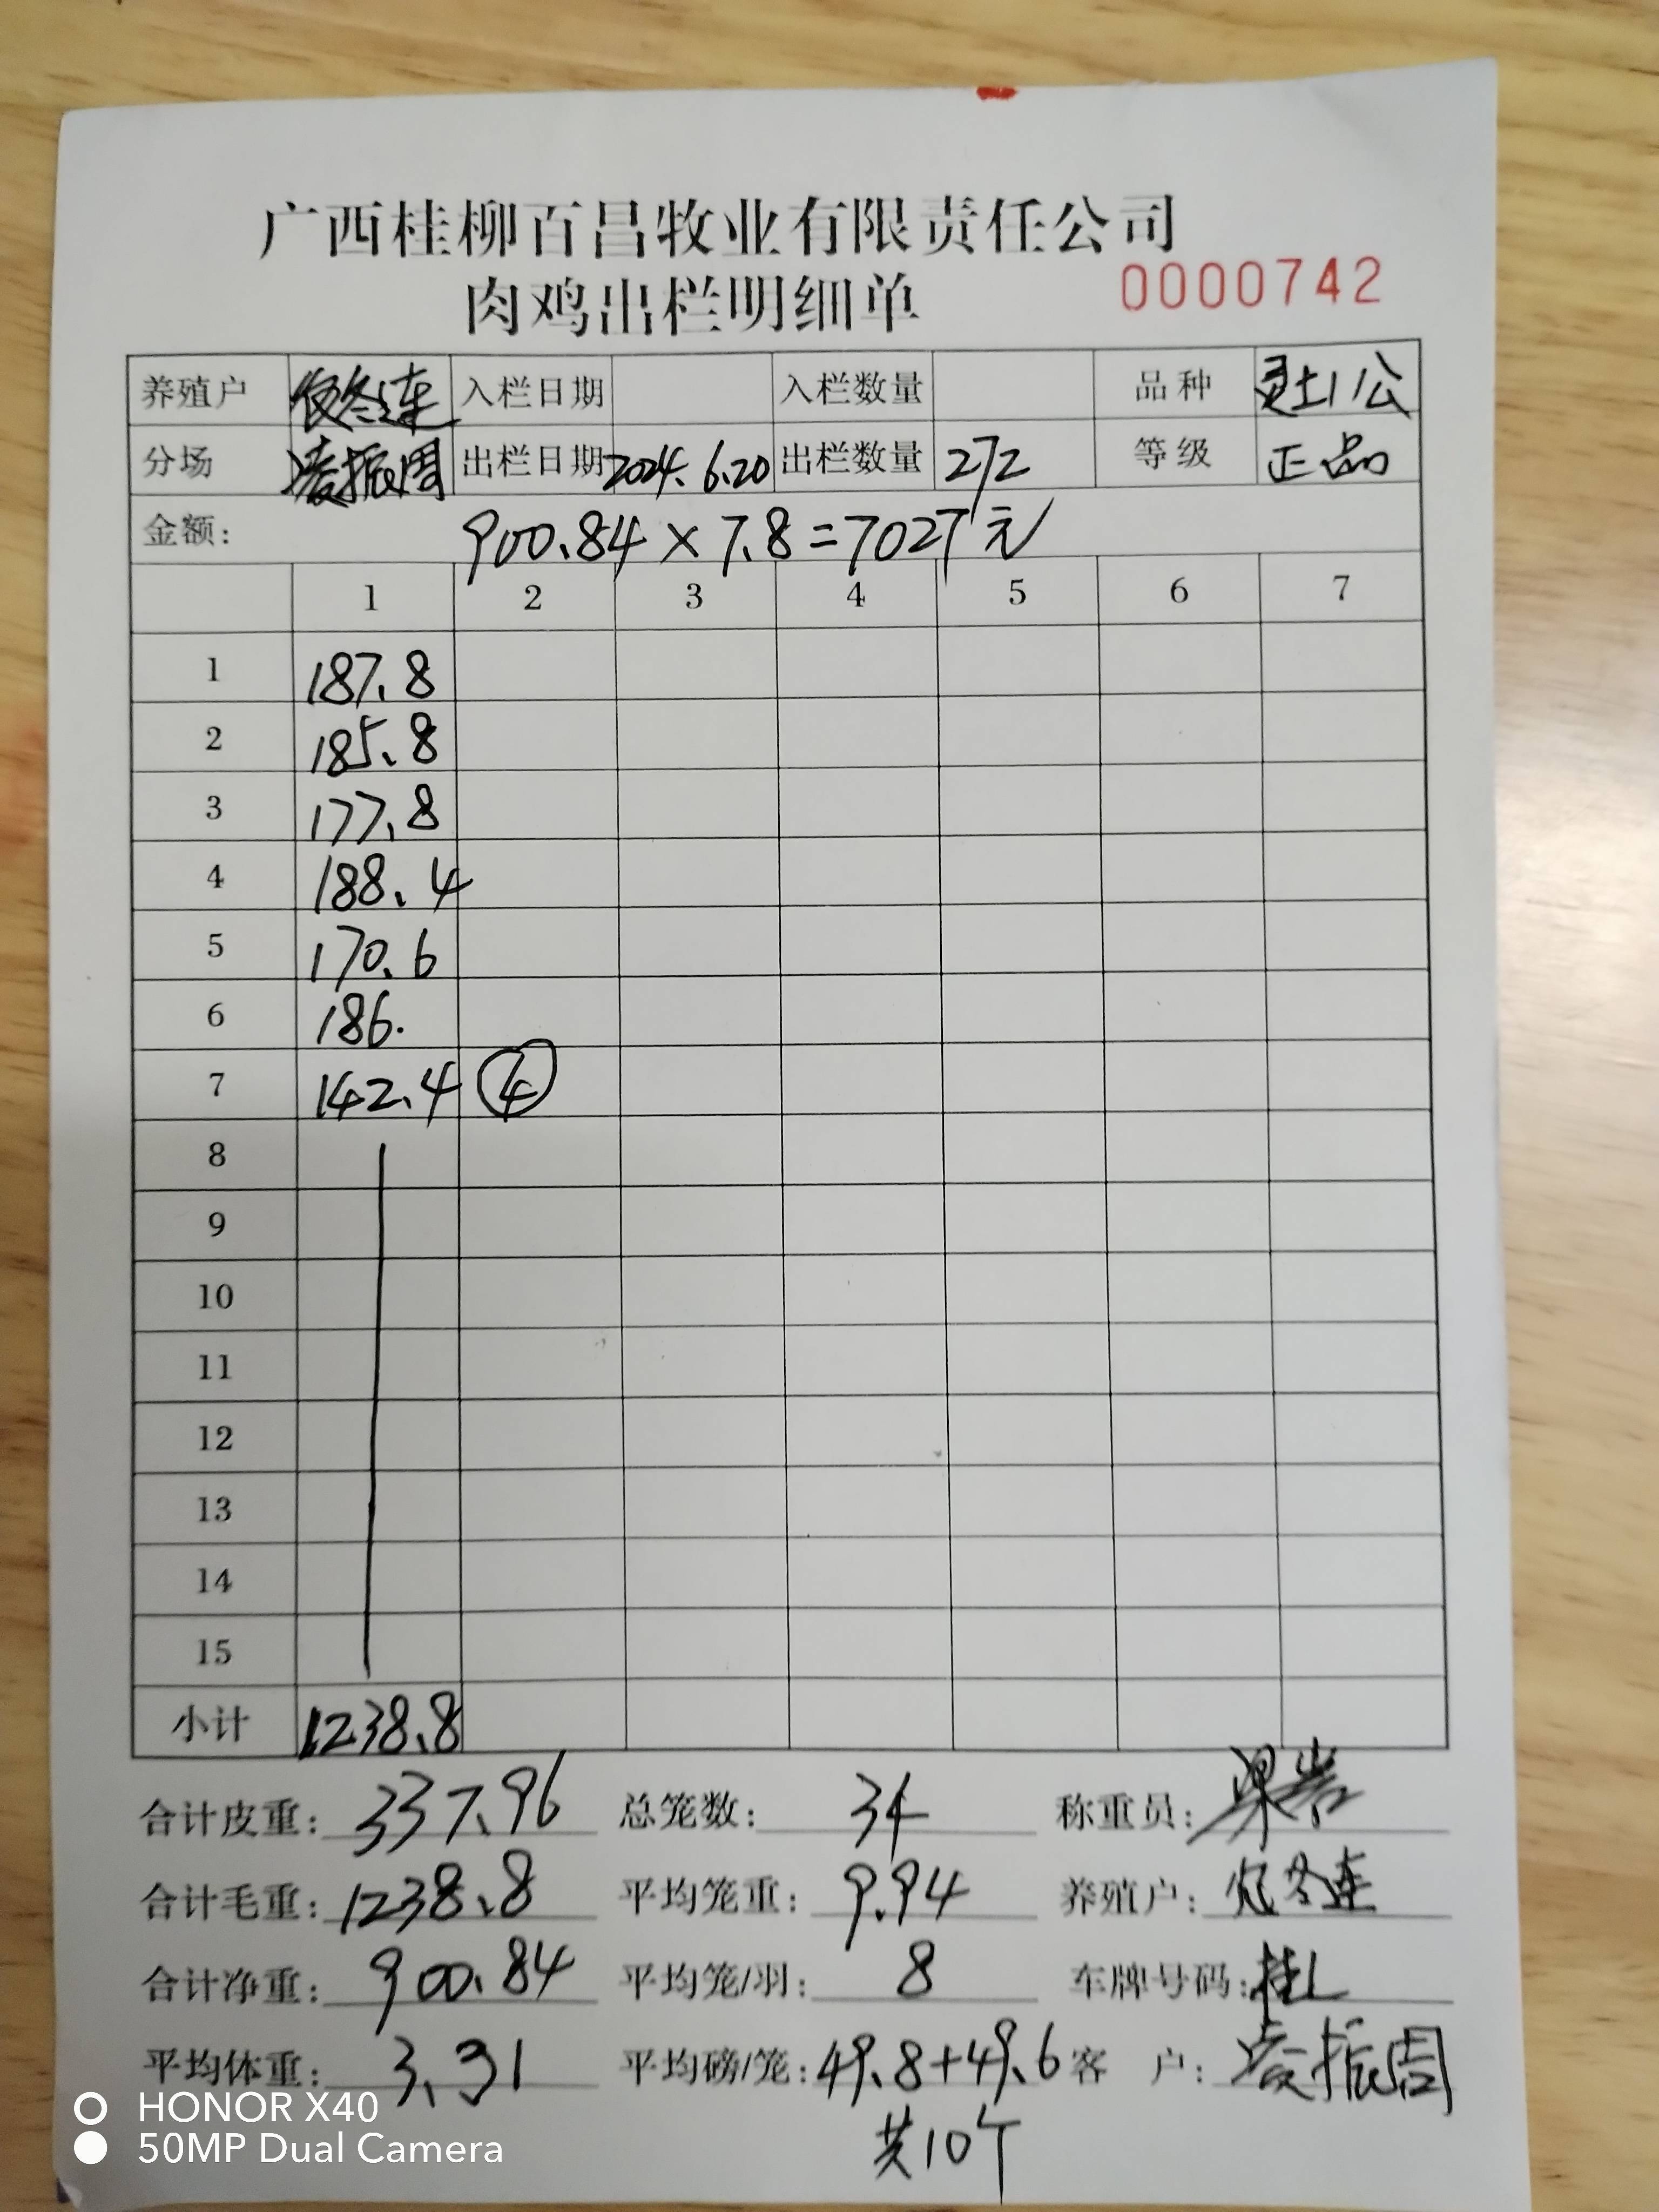 广西桂柳百昌牧业有限责任公司
肉鸡出栏明细单 0000742
养殖户 冬连 入栏日期 入栏数量 品种 灵土1公
分场 凌振周 出栏日期 2024.6.20 出栏数量 272 等级 正品
金额: 900.84×7.8=7027元
1 2 3 4 5 6 7
1 187.8
2 185.8
3 177.8
4 188.4
5 170.6
6 186.
7 142.4 ④
8
9
10
11
12
13
14
15
小计 1238.8
合计皮重: 337.96 总笼数: 34 称重员:
合计毛重: 1238.8 平均笼重: 9.94 养殖户: 冬连
合计净重: 900.84 平均笼/羽: 8 车牌号码: 桂L
平均体重: 3.31 平均磅/笼: 49.8+49.6 客 户: 凌振周
共10个
HONOR X40
50MP Dual Camera